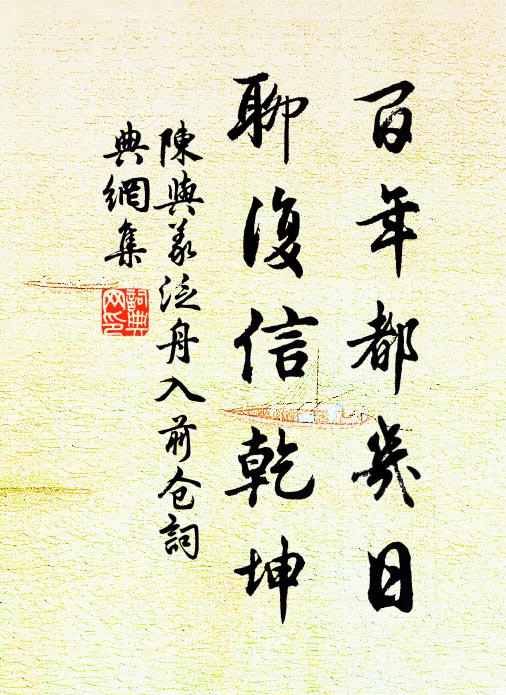 百年都幾日
聊復信乾坤
陳與義泛舟入前仓詞
典網集
詞典網印